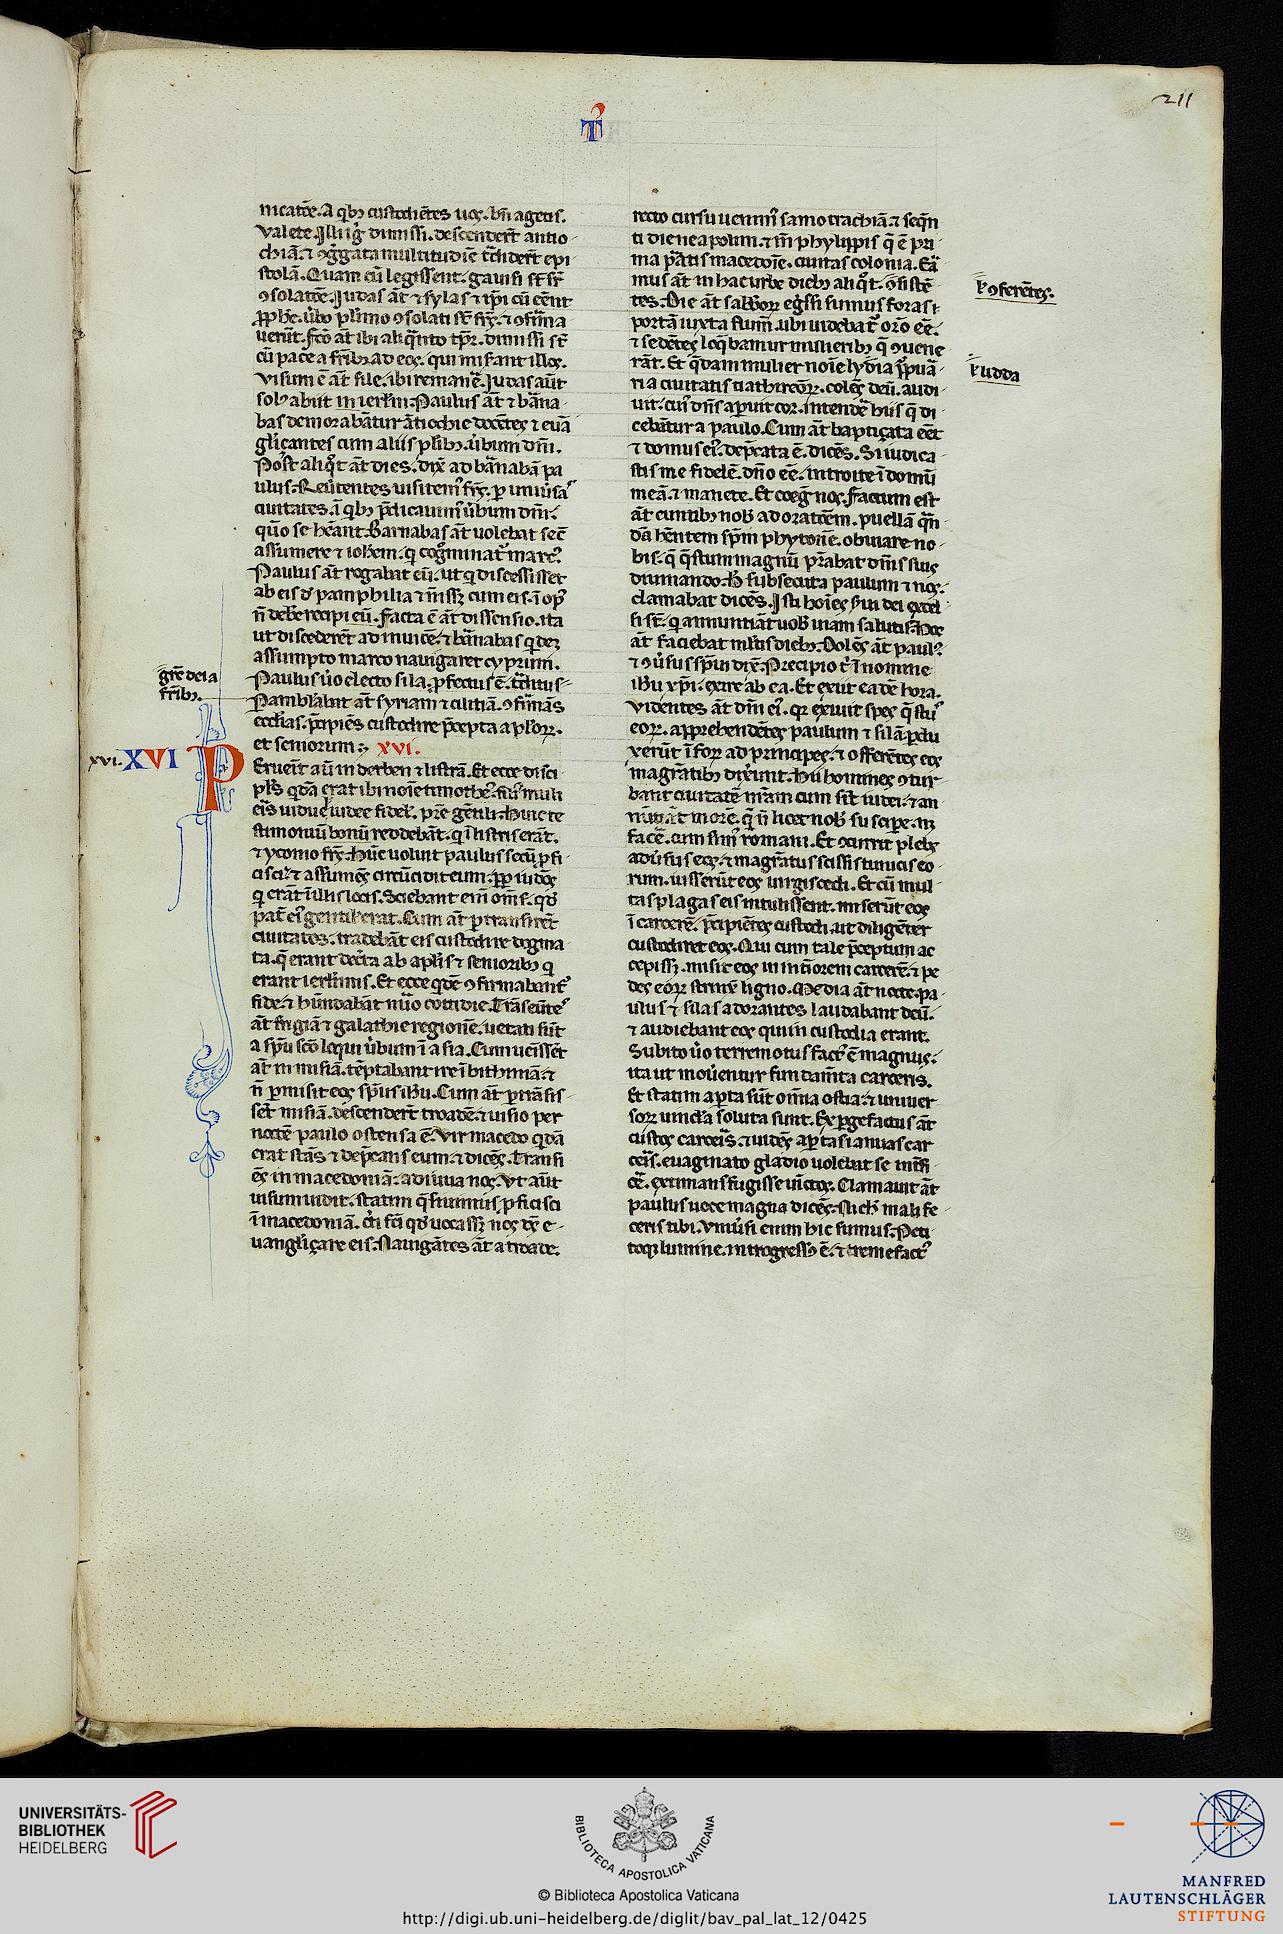 211
T᷒
nicatōe. A qbꝫ custodiētes uos. bn̄ agetis.
Valete. Illi igͥ dimissi. descenderūt antio-
chiā. ⁊ ꝯgͤgata multitudīe tͣdiderūt epi-
stolā. Quam cū legissent. gauisi st̄ sr̄
ꝯsolatōe. Iudas āt ⁊ sylas ⁊ ip̄i cū eēnt
ꝓph̄e. ūbo plimo ꝯsolati st̄ fr̄s. ⁊ ꝯfirma
uerūt. Fc̄o āt ibi aliqͣnto tp̄r. dimissi st̄
cū pace a fr̄ibꝫ ad eos. qui miserant illos.
Visum ē āt sile. ibi remanē. Iudas aūt
solꝰ abiit in ierl̄m. Paulus āt ⁊ bāna-
bas demorabāntur ātiochie docētes ⁊ euā
gliçantes cum aliis plibꝫ. ūbum dn̄i.
Post aliqͦt āt dies. dix̄ ad bānabā pa
ulus. Reūtentes uisitemꝰ fr̄s. ꝑ uniūsaˢ
ciuitates. ī qͥbꝫ p̄dicauimꝰ ūbum dn̄i.
qūo se hēant. Barnabas āt uolebat secū
assumere ⁊ ioh̄em. qͥ cogͦminatꝰ marcꝰ.
Paulus āt rogabat eū. ut qͥ discessisset
ab eis d̄ pamphilia ⁊ n̄ issꝫ cum eis. ī opꝰ
n̄ debē recipi eū. Facta ē āt dissensio. ita
ut discederēt ad inuicē. ⁊ bānabas qͥdeꝫ
assumpto marco nauigaret cyprum.
Paulus ūo electo sila. ꝓfectus ē. tͣditus
gr̄e dei a
fr̄ibꝫ.
Pambl̄abat āt syriam ⁊ ciliciā. ꝯfirmās
ecclīas. p̄cipiēs custodire p̄cepta aplōꝝ.
et seniorum. xvi.
xvi. XVI
Peruēit aū in derben ⁊ listrā. Et ecce disci
pulꝰ qͥdā erat ibi noīe timotheꝰ. filiꝰ muli
eͥis uidue iudee fidelꝰ. pr̄e gētili. Huic te
stimoniū bonū reddebāt. qͥ ī listris erāt.
⁊ yconio fr̄s. Hūc uoluit paulus secū ꝓfi
cisci. ⁊ assumēs circūcidit eum. ꝓp̄ iudeos
qͥ erāt ī illis locis. Sciebant enī om̄s. qd̄
pat̄ eiꝰ gentil' erat. Cum āt ꝑtransirēt
ciuitates. tradebāt eis custodire dogma
ta. q̄ erant decͤta ab aplis ⁊ senioribꝫ qͥ
erant ierl̄imis. Et ecce qͥdē ꝯfirmabantꝰ
fide. ⁊ hundabāt nūo cottidie. Trāseūteˢ
āt frigiā ⁊ galathie regionē. uetati sūt
a spū sc̄o loqui ūbum ī asia. Cum uēissēt
āt in misiā. tēptabant ire ī bithiniā. ⁊
n̄ ꝑmisit eos spūs ih̄u. Cum āt ꝑtrāsis
sēt misiā. descenderūt troadē. ⁊ uisio per
noctē paulo ostensa ē. Vir macedo qͥdā
erat stās ⁊ dep̄cans eum. ⁊ dicēs. Transi
ēs in macedoniā. adiuua nos. Vt aūt
uisum uidit. statim q̄siuimus ꝓficisci
ī macedoniā. c̄ti fc̄i qd̄ uocassꝫ nos dēs e-
uangliçare eis. Nauigātes āt a troade.
recto cursu uenimꝰ samotrachiā. ⁊ seqn̄
ti die neapolim. ⁊ in̄ phylippis q̄ ē pri-
ma ꝑ̄tis macedoīe. ciuitas colonia. Eāꝰ
mus āt in hac urbe diebꝫ aliqͦt. ꝯsistē-
ꝉ ꝯferētes.
tes. Die āt sabb̄oꝝ eḡssi sumus foras ⁊
portā iuxta flum̄. ubi uidebatꝰ or̄o eē.
⁊ sedētes loqͣbamur mulieribꝫ q̄ ꝯuene
rāt. Et qͣdam mulier noīe lydia p̄puā-
ꝉ iudda
ria ciuitatis tiathireoꝝ. colēs deū. audi-
uit. cuiꝰ dn̄s aꝑuit cor. intendē hiis q̄ di-
cebātur a paulo. Cum āt baptiçata eēt
⁊ domus eiꝰ. dep̄cata ē. dicēs. Si iudica-
stis me fidelē. dn̄o eē. introite ī domū
meā. ⁊ manete. Et coegͥ nos. Factum est
āt euntibꝫ nob̄ ad oratōem. puellā qn̄-
dā hn̄tem spm̄ phytonē. obuiare no-
bis. q̄ q̄stum magnū p̄stabat dn̄is suis
diuinando. H̄ subsecuta paulum ⁊ nos.
clamabat dicēs. Isti hoīes serui dei excel-
si st̄. qͥ annuntiāt uob̄ uiam salutis. Hoc
āt faciebat mltis diebꝫ. Dolēs āt paulꝰ
⁊ ꝯūsus spūi dix̄. Precipio tͥ ī nomine
ih̄u xp̄i. exire ab ea. Et exiit eadē hora.
Videntes āt dn̄i eiꝰ. qr exiuit spes q̄stuˢ
eoꝝ. apprehendētes paulum ⁊ silā ꝑdu
xerūt ī foꝝ ad principes. ⁊ offerētes eos
magr̄atibꝫ dixerunt. Hii homines ꝯtur-
bant ciuitatē nr̄am cum sīt iudei. ⁊ an-
nuntiāt morē. q̄ n̄ licet nob̄ suscipe. nꝫ
facē. cum simꝰ romani. Et ꝯcurrit plebs
adūsus eos. ⁊ magr̄atus scissis tunicis eo-
rum. iusserūt eos uirgis cedi. Et cū mul-
tas plagas eis intulissent. miserūt eos
ī carcerē. p̄cipiētes custodi. ut diligēter
custodiret eos. Qui cum tale p̄ceptum ac
cepissꝫ. misit eos in intͥorem carcerē. ⁊ pe
des eoꝝ strinxͥ ligno. Media āt nocte. pa-
ulus ⁊ silas adorantes laudabant deū.
⁊ audiebant eos qui in custodia erant.
Subito ūo terremotus factꝰ ē magnus.
ita ut mouentur fundam̄ta carceris.
Et statim aꝑta sūt omīa ostia. ⁊ uniuer-
soꝝ uincl̄a soluta sunt. Exꝑgefactus āt
custos carceris. ⁊ uidēs aꝑtas ianuas car
ceris. euaginato gladio uolebat se intͥfi
cē. extimans fugisse uīctos. Clamauit āt
paulus uoce magna dicēs. Nichil mali fe-
ceris tibi. Vniūsi enim hic sumus. Peti-
toqͣ lumine. introgressꝰ ē. ⁊ tremefactꝰ
UNIVERSITÄTS-
BIBLIOTHEK
HEIDELBERG
BIBLIOTECA APOSTOLICA VATICANA
© Biblioteca Apostolica Vaticana
http://digi.ub.uni-heidelberg.de/diglit/bav_pal_lat_12/0425
MANFRED
LAUTENSCHLÄGER
STIFTUNG